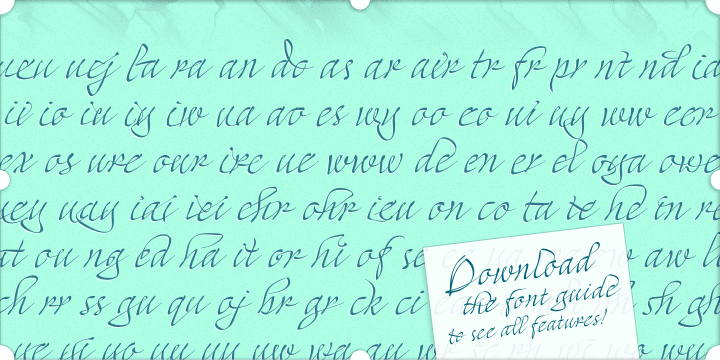 uej la ra an do as ar air tr fr pr nt nd
io iu iy iw ua ao es wy oo eo ui uy ww eer
ex os ure our ire ue www de en er el oya owe
uay iai iei ehr ohr ieu on co ta te he in
ou ng ed ha it or hi of se aw
rr ss gu qu oj br gr ck ci sh gh
Download
the font guide
to see all features!